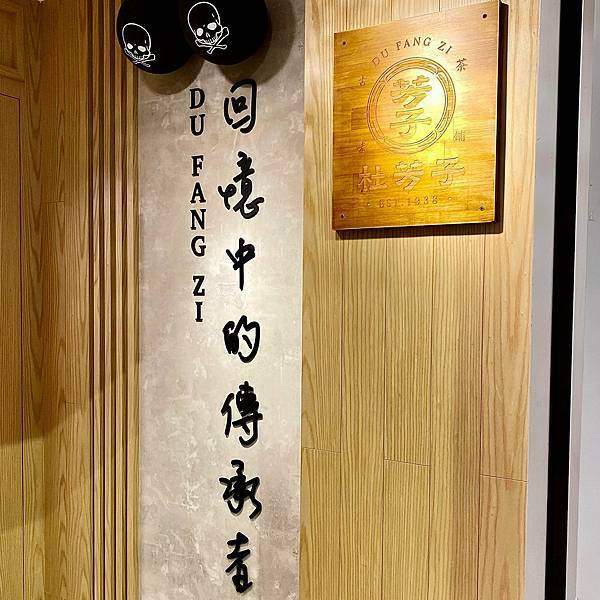 回憶中的傳承者
DU FANG ZI
DU FANG ZI
古味
茶舖
芳子
杜芳子
EST.1938